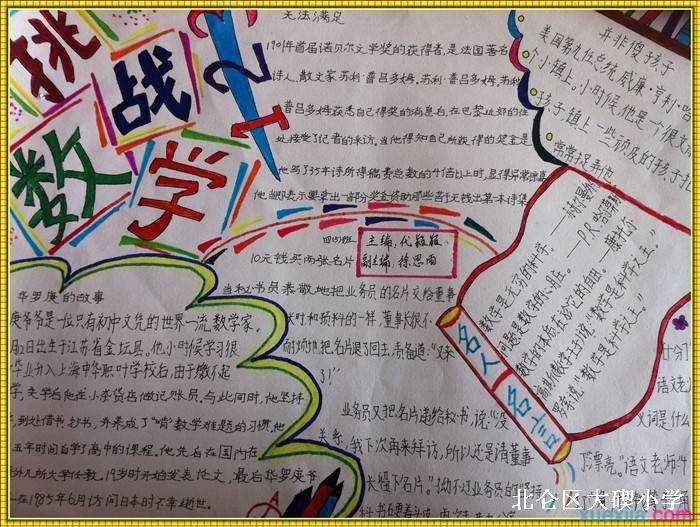 挑战
数学
无法满足
1901年首届诺贝尔文学奖的获得者,是法国著名
诗人、散文家苏利·普吕多姆。苏利·普吕多姆,苏利
普吕多姆获悉自己得奖的消息后,在巴黎北郊的住
处接受了记者的采访。当他得知自己所获得的奖金是
他写了35年诗所得稿费总数的
他当即表示要拿出一部分奖金资助那些苦于无钱出第一本诗集
并非傻孩子
美国第九任总统威廉·亨利·
个小镇上。小时候,他是个很文
孩子,镇上一些顽皮的孩子
常常捉弄他
四(4)班
主编:代
副主编:徐思雨
10元钱买两张名片
当秘书员恭敬地把业务员的名片交给董事
长时和预料的一样,董事长很不
耐烦地把名片退了回去。秘书道:“又来
了!”
业务员又把名片递给秘书,说:“没
关系,我下次再来拜访,所以还是请董事
长留下名片。”拗不过业务员的坚持
华罗庚的故事
庚爷爷是一位只有初中文凭的世界一流数学家。
月12日出生于江苏省金坛县。他小时候学习很
毕业分入上海中华职业学校后,由于缴不起
学,失学后他在小杂货店做记账员,与此同时,他坚持
,到处借书、抄书,并养成了“啃”数学难题的习惯,他
五年时间自学了高中的课程,他先后在国内在
外几所大学任教。19岁时开始发表论文,最后华罗庚爷
在1985年6月访问日本时不幸逝世。
名人名言
数学是无穷的科学。
——赫尔曼外尔
问题是数学的心脏。
——P.R.哈尔莫斯
数学的本质在于它的自由。
——康托尔
高斯(数学王子)说:“数学是科学之王”
罗素说:“数学是科学之王。”
什么
语文老
义词是什么
漂亮。”语文老师
北仑区大碶小学